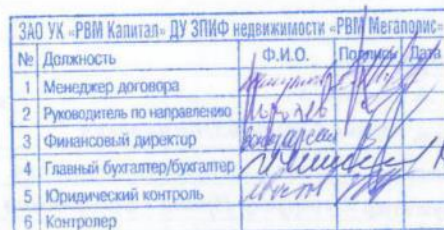 ЗАО УК «РВМ Капитал» ДУ ЗПИФ недвижимости «РВМ Мегаполис»
№ Должность Ф.И.О. Подпись Дата
1 Менеджер договора
2 Руководитель по направлению
3 Финансовый директор
4 Главный бухгалтер/бухгалтер
5 Юридический контроль
6 Контролер